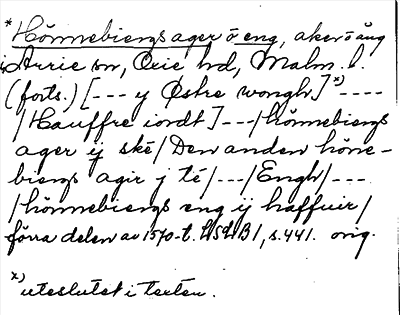 * Hönnebiergs ager o eng, åker o äng
i Arrie sn, Oxie hd, Malm. l.
(forts.) [--- y Østre wongh] x) ----
/ Hauffre iordt] ---/ hönnebiergs
ager ij ské/ Den anden höne-
biergs agir j té/ ---/ Engh/ ---
/ hönnebiergs eng ij haffuir/
förra delen av 1570-t. LSLB 1, s. 441. orig.
x) uteslutet i texten.